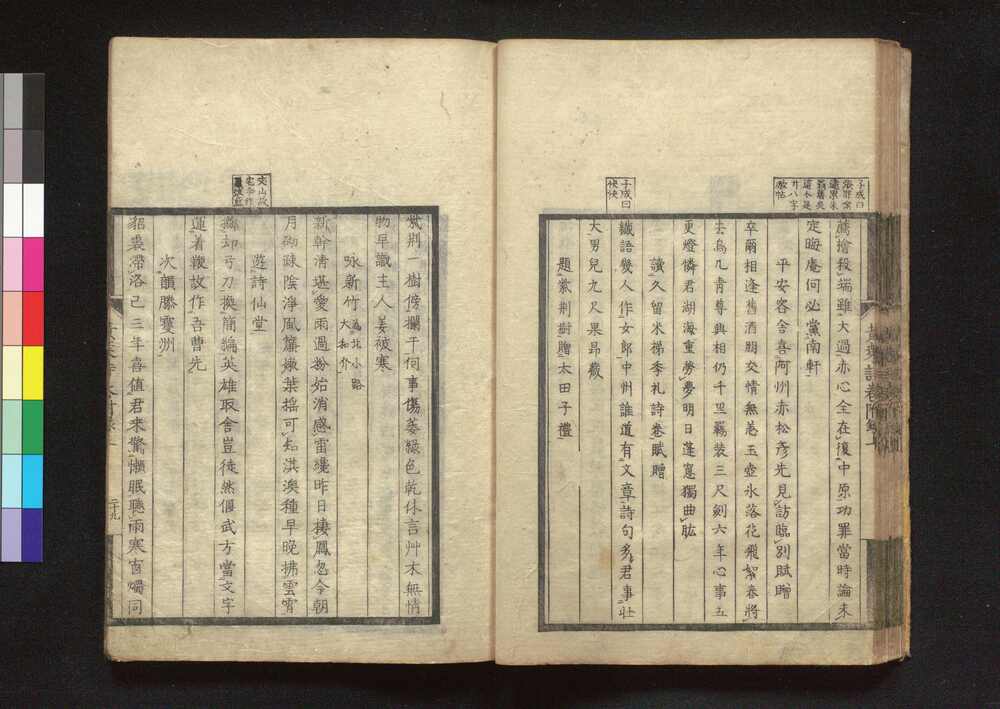 子成曰
薦搶殺端雖大過亦心全在復中原功罪當時論未
定晦庵何必黨南軒
平安客舍喜阿州赤松彥光見訪臨別賦贈
卒爾相逢舊酒朋交情無恙玉壺氷落花飛絮春將
去烏几青尊興相仍千里羈裝三尺劍六年心事五
更燈憐君湖海重勞夢明日蓬窓獨曲肱
讀久留米梯季礼詩卷賦贈
子成曰
快快
纖語幾人作女郎中州誰道有文章詩句多君事壯
大男兒九尺果昂藏
題紫荆樹贈太田子禮
紫荆一樹傍攔干何事傷萎綠色乾休言艸木無情
物早識主人姜被寒
咏新竹爲北小路
大和介
新幹清堪愛雨過粉始消感雷纔昨日棲鳳忽今朝
月砌疎陰淨風簾嫩葉搖可知淇澳種早晩拂雲霄
遊詩仙堂
擲却弓刀換簡編英雄取舍豈徒然偃武方當文字
運着鞭故作吾曹先
次韻滕霞洲
貂裘滯洛已三年喜値君來驚懶眠聽雨寒窗燭同
二十九